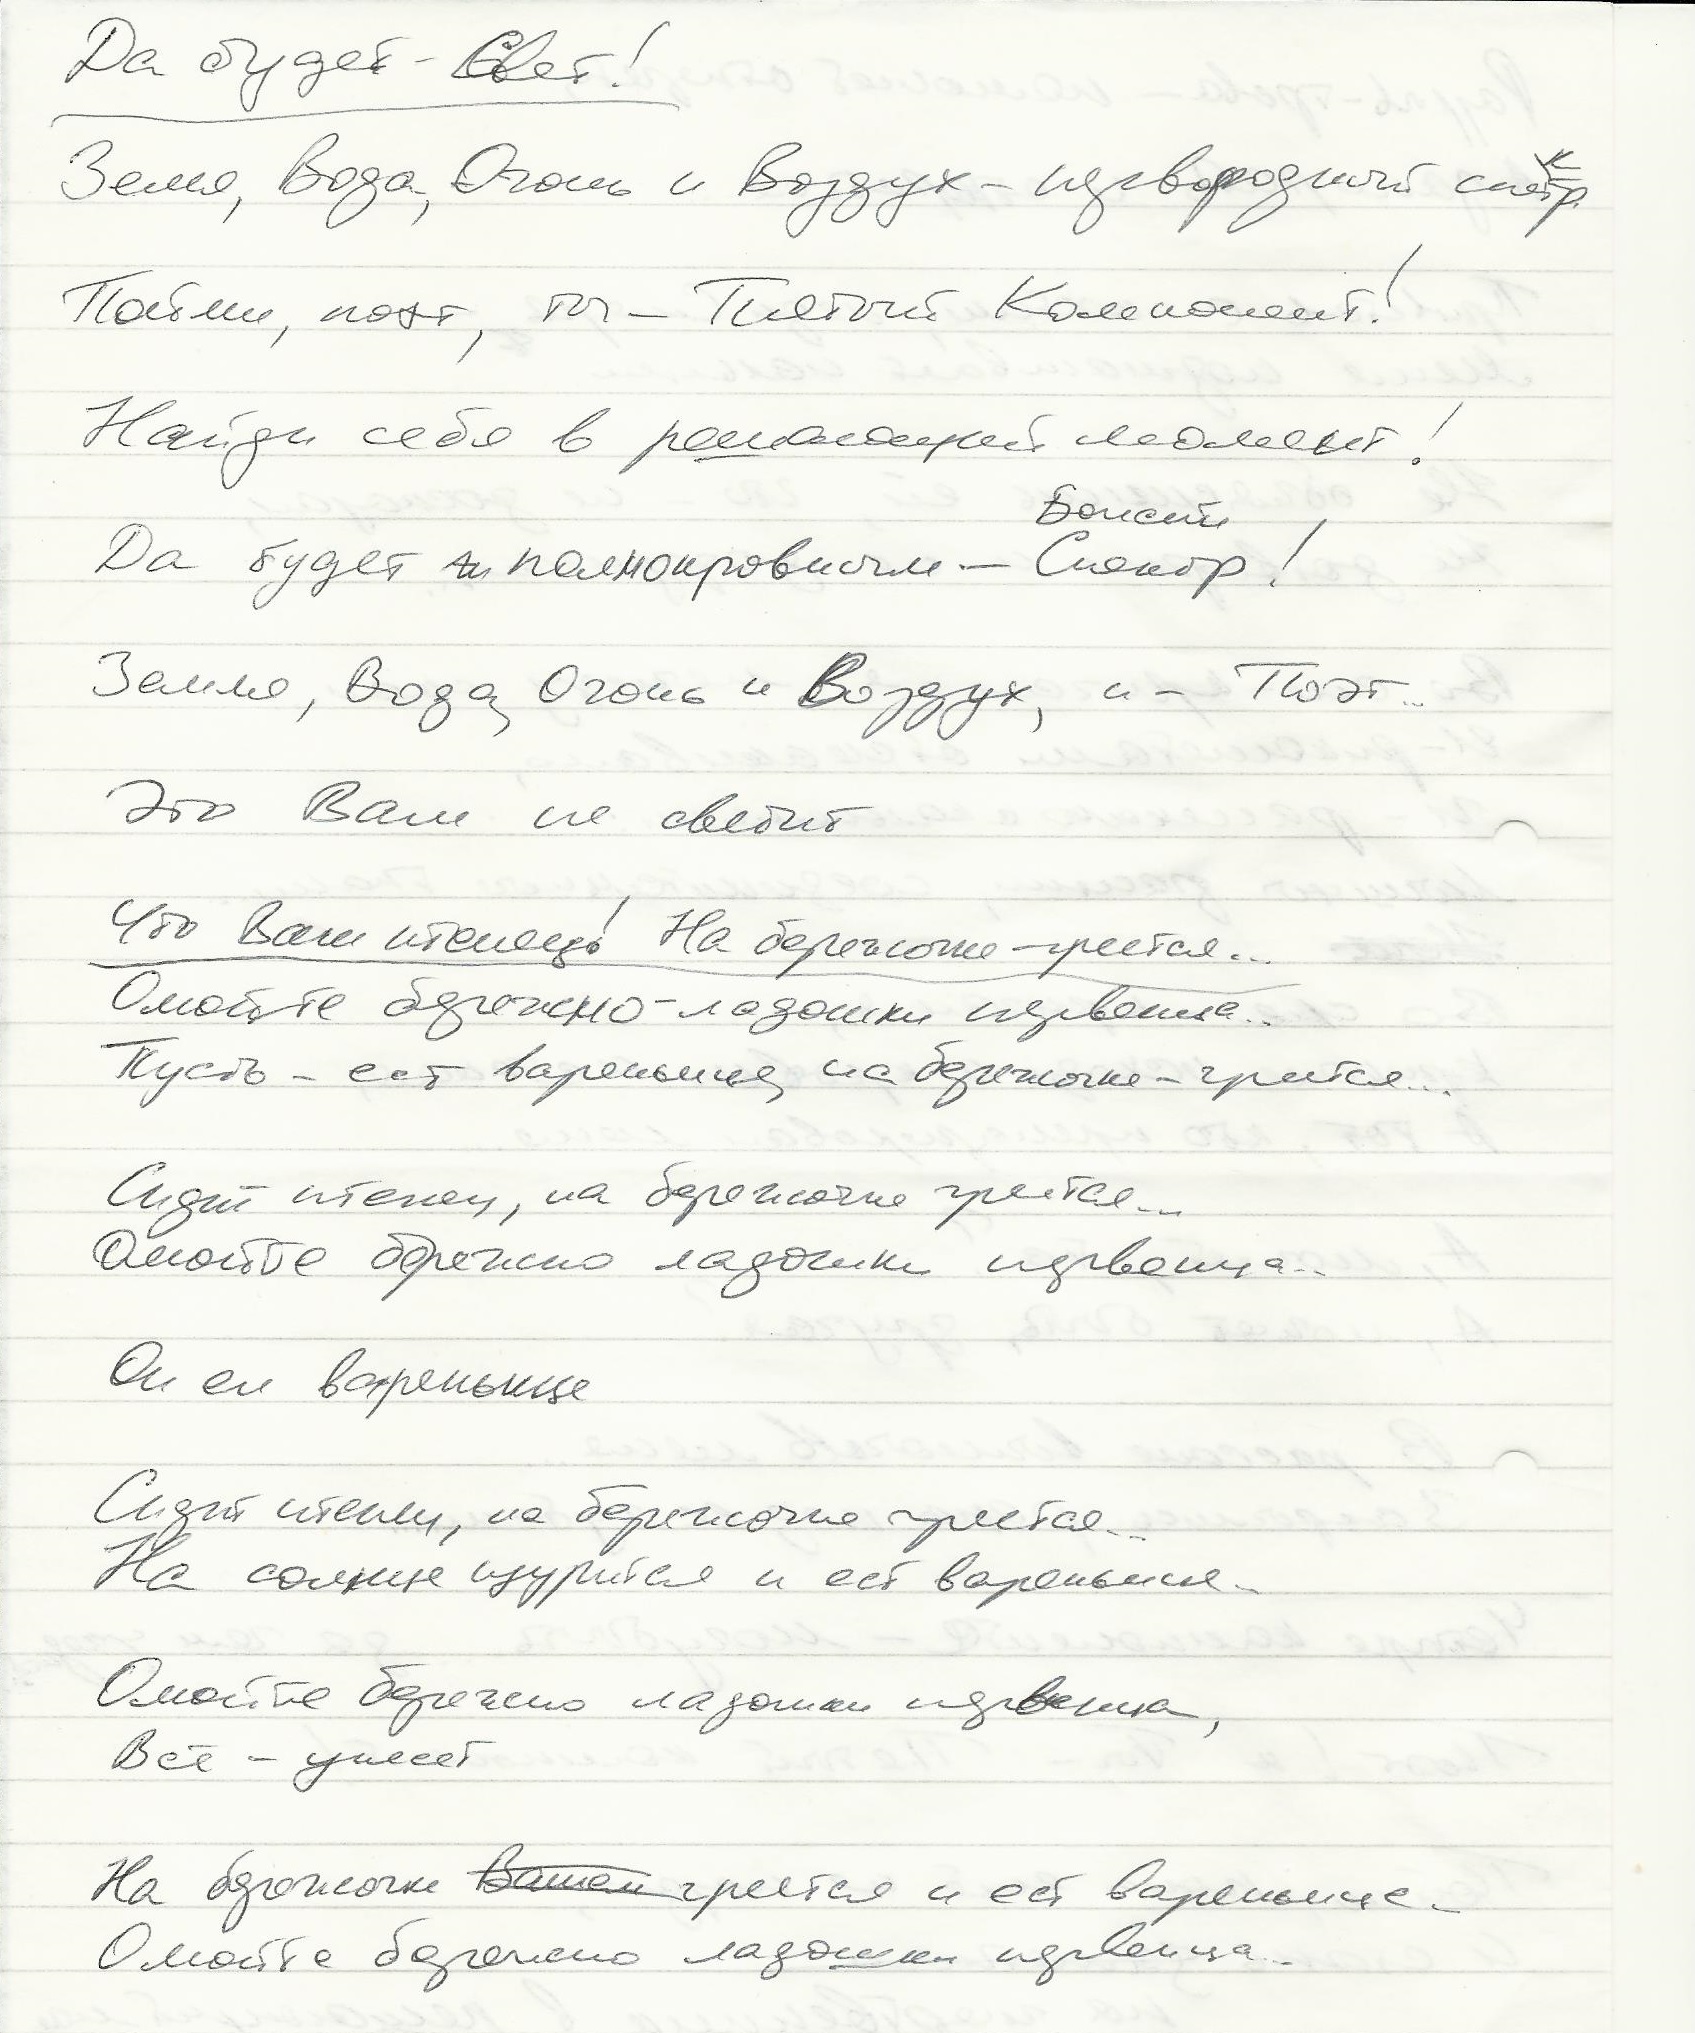 Да будет - Свет!
Земля, Вода, Огонь и Воздух - первородный спектр
Пойми, поэт, ты - Пятый Компонент!
Найди себя в решающий момент!
Божий
Да будет полнокровным - Спектр!
Земля, Вода, Огонь и Воздух, и - Поэт...
Это Вам не светит
Что Ваш птенец! На бережочке - греется...
Омойте бережно - ладошки первенца...
Пусть - ест вареньице, на бережочке - греется...
Сидит птенец, на бережочке греется...
Омойте бережно ладошки первенца...
Он ел вареньице
Сидит птенец, на бережочке греется...
На солнце щурится и ест вареньице...
Омойте бережно ладошки первенца,
Всё - унесёт
На бережочке Вашем греется и ест вареньице...
Омойте бережно ладошки первенца...